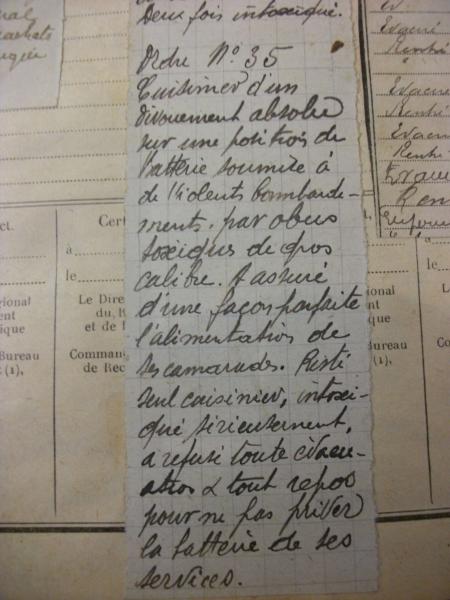 nal
achats
Deux fois intoxiqué.
Ordre N° 35
Cuisinier d'un
dévouement absolu
sur une position de
batterie soumise à
de violents bombarde-
ments, par obus
toxiques de gros
calibre. A assuré
d'une façon parfaite
l'alimentation de
ses camarades. Resté
seul cuisinier, intoxi-
qué sérieusement,
a refusé toute évacu-
ation & tout repos
pour ne pas priver
la batterie de ses
services.
ct.
gional
ent
ique
Bureau
(1),
Cert
à
le
Le Dire
du, R
et de l
Comman
de Rec
à
le
Le
Co
Evacué
Rentré
"
Evacué
Rentré
Evacué
Rentré
Evacué
Ren
gional
ent
ique
Bureau
t (1),